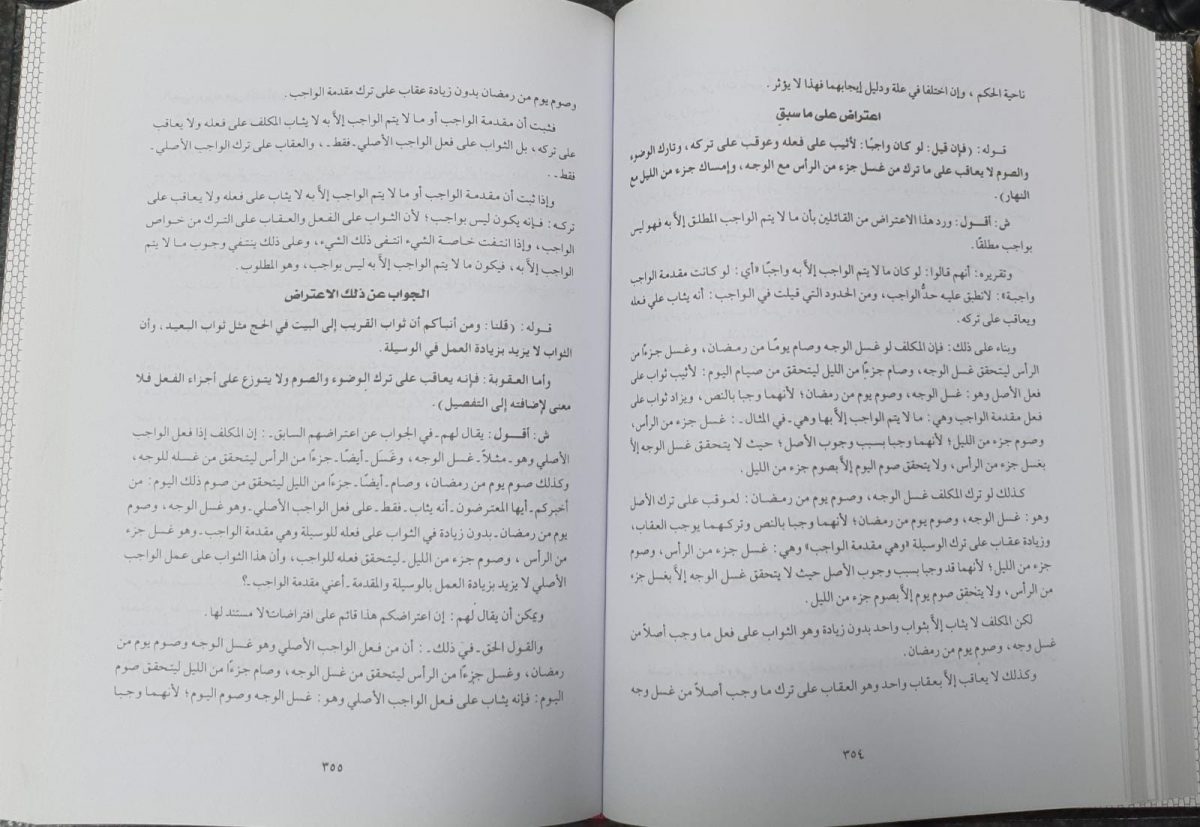 ناحية الحكم، وإن اختلفا في علة ودليل إيجابهما فهذا لا يؤثر.
اعتراض على ما سبق
قوله: (فإن قيل: لو كان واجبًا: لأثيب على فعله وعوقب على تركه، وتارك الوضوء
والصوم لا يعاقب على ما ترك من غسل جزء من الرأس مع الوجه، وإمساك جزء من الليل مع
النهار).
ش: أقـول: ورد هذا الاعتراض من القائلين بأن ما لا يتم الواجب المطلق إلاَّ به فهو ليس
بواجب مطلقًا.
وتقريره: أنهم قالوا: لو كان ما لا يتم الواجب إلاَّ به واجبًا «أي: لو كانت مقدمة الواجب
واجبة»: لانطبق عليه حدُّ الواجب، ومن الحدود التي قيلت في الواجب: أنه يثاب علي فعله
ويعاقب على تركه.
وبناء على ذلك: فإن المكلف لو غسل الوجه وصام يومًا من رمضان، وغسل جزءًا من
الرأس ليتحقق غسل الوجه، وصام جزءًا من الليل ليتحقق من صيام اليوم: لأثيب ثواب على
فعل الأصل وهو: غسل الوجه، وصوم يوم من رمضان؛ لأنهما وجبا بالنص، ويزاد ثواب على
فعل مقدمة الواجب وهي: ما لا يتم الواجب إلاَّ بها وهي ـ في المثال ـ: غسل جزء من الرأس،
وصوم جزء من الليل؛ لأنهما وجبا بسبب وجوب الأصل؛ حيث لا يتحقق غسل الوجه إلاَّ
بغسل جزء من الرأس، ولا يتحقق صوم اليوم إلاَّ بصوم جزء من الليل.
كـذلك لو ترك المكلف غسل الوجه، وصوم يوم من رمضان: لعوقب على ترك الأصل
وهو: غسل الوجه، وصوم يوم من رمضان؛ لأنهما وجبا بالنص وتركـهما يوجب العقاب،
وزيادة عقاب على ترك الوسيلة «وهي مقدمة الواجب» وهي: غسل جزء من الرأس، وصوم
جزء من الليل؛ لأنهما قد وجبا بسبب وجوب الأصل حيث لا يتحقق غسل الوجه إلاَّ بغسل جزء
من الرأس، ولا يتحقق صوم يوم إلاَّ بصوم جزء من الليل.
لكن المكلف لا يثاب إلاَّ بثواب واحد بدون زيادة وهو الثواب على فعل ما وجب أصلاً من
غسل وجه، وصوم يوم من رمضان.
وكذلك لا يعاقب إلاَّ بعقاب واحد وهو العقاب على ترك ما وجب أصلاً من غسل وجه
٣٥٤
وصوم يوم من رمضان بدون زيادة عقاب على ترك مقدمة الواجب.
فثبت أن مقدمة الواجب أو ما لا يتم الواجب إلاَّ به لا يثاب المكلف على فعله ولا يعاقب
على تركه، بل الثواب على فعل الواجب الأصلي ـ فقط ـ، والعقاب على ترك الواجب الأصلي ـ
فقط ـ.
وإذا ثبت أن مقدمـة الواجب أو ما لا يتم الواجب إلاَّ به لا يثاب على فعله ولا يعاقب على
تركه: فـإنه يكون ليس بواجب؛ لأن الثواب على الفعل والعـقاب على التـرك من خـواص
الواجب، وإذا انتفت خاصـة الشيء انتفى ذلك الشيء، وعلى ذلك ينتفي وجـوب مـا لا يتم
الواجب إلاَّ به، فيكون ما لا يتم الواجب إلاَّ به ليس بواجب، وهو المطلوب.
الجواب عن ذلك الاعتراض
قـوله: (قلنا: ومن أنبأكم أن ثواب القريب إلى البيت في الحج مثل ثواب البعيد، وأن
الثواب لا يزيد بزيادة العمل في الوسيلة.
وأما العقـوبة: فإنـه يعاقب على ترك الوضوء والصوم ولا يتـوزع على أجزاء الفعل فـلا
معنى لإضافته إلى التفصيل).
ش: أقـول: يقال لهم ـ في الجواب عن اعتراضهم السابق ـ: إن المكلف إذا فعل الواجب
الأصلي وهو ـ مثـلاً ـ غسل الوجه، وغَسَل ـ أيضًا ـ جزءًا من الرأس ليتحقق من غسله للوجه،
وكذلك صوم يوم من رمضان، وصام ـ أيضًا ـ جزءًا من الليل ليتحقق من صوم ذلك اليوم: من
أخبركم ـ أيها المعترضون ـ أنه يثاب ـ فقط ـ على فعل الواجب الأصلي ـ وهو غسل الوجه، وصوم
يوم من رمضان ـ بدون زيادة في الثواب على فعله للوسيلة وهي مقدمة الواجب ـ وهو غسل جزء
من الرأس، وصوم جزء من الليل ـ ليتحقق فعله للواجب، وأن هذا الثواب على عمل الواجب
الأصلي لا يزيد بزيادة العمل بالوسيلة والمقدمة ـ أعني مقدمة الواجب ـ؟
ويمكن أن يقال لهم: إن اعتراضكم هذا قائم على افتراضات لا مستند لها.
والقول الحق ـ في ذلك ـ: أن من فعل الواجب الأصلي وهو غسل الوجه وصوم يوم من
رمضان، وغسل جزءًا من الرأس ليتحقق من غسل الوجه، وصام جزءًا من الليل ليتحقق صوم
اليوم: فإنه يثاب على فعل الواجب الأصلي وهو: غسل الوجه وصوم اليوم؛ لأنهما وجبا
٣٥٥